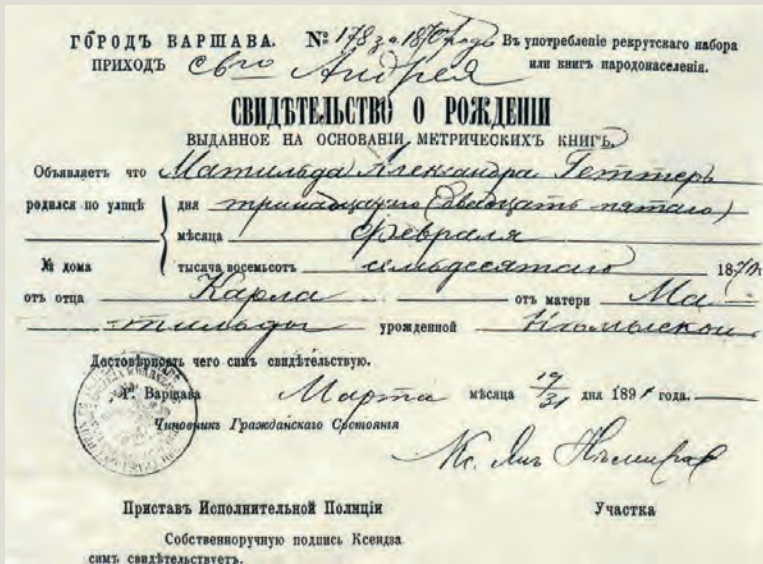 ГОРОДЪ ВАРШАВА. № 178 за 1870 годъ Въ употребленіе рекрутскаго набора
ПРИХОДЪ Свго Андрея или книгъ народонаселенія.
СВИДѢТЕЛЬСТВО О РОЖДЕНІИ
ВЫДАННОЕ НА ОСНОВАНІИ МЕТРИЧЕСКИХЪ КНИГЪ.
Объявляетъ что Матильда Александра Геттеръ
родился по улицѣ дня тринадцатаго (двадцать пятаго)
мѣсяца Февраля
№ дома тысяча восемьсотъ семьдесятаго 1870
отъ отца Карла отъ матери Ма-
тильды урожденной
Достовѣрность чего симъ свидѣтельствую.
Г. Варшава Марта мѣсяца 19/31 дня 1891 года.
Чиновникъ Гражданскаго Состоянія
Кс. Янъ
Приставъ Исполнительной Полиціи Участка
Собственноручную подпись Ксендза
симъ свидѣтельствуетъ.